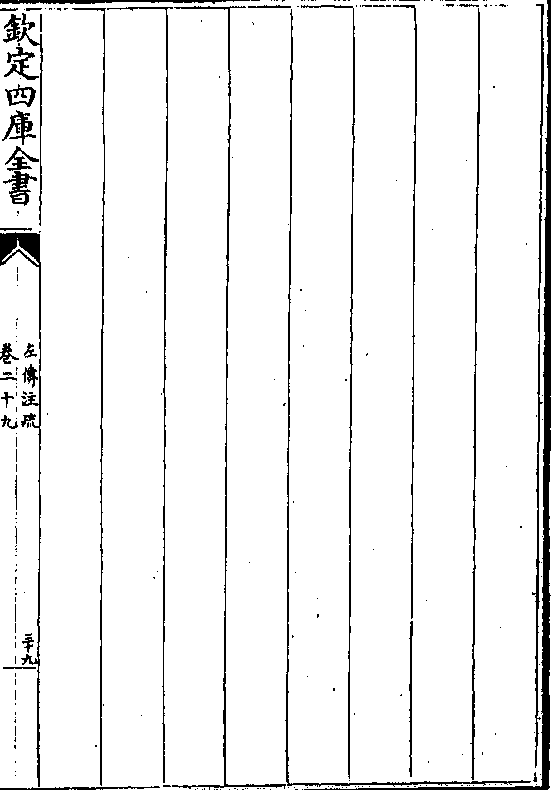 欽定四庫全書
左傳注疏
卷二十九
三十九